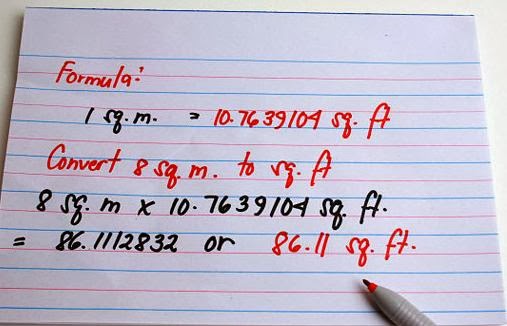 Formula:
1 sq.m. = 10.7639104 sq. ft
Convert 8 sq.m. to sq. ft
8 sq. m x 10.7639104 sq. ft.
= 86.1112832 or 86.11 sq. ft.